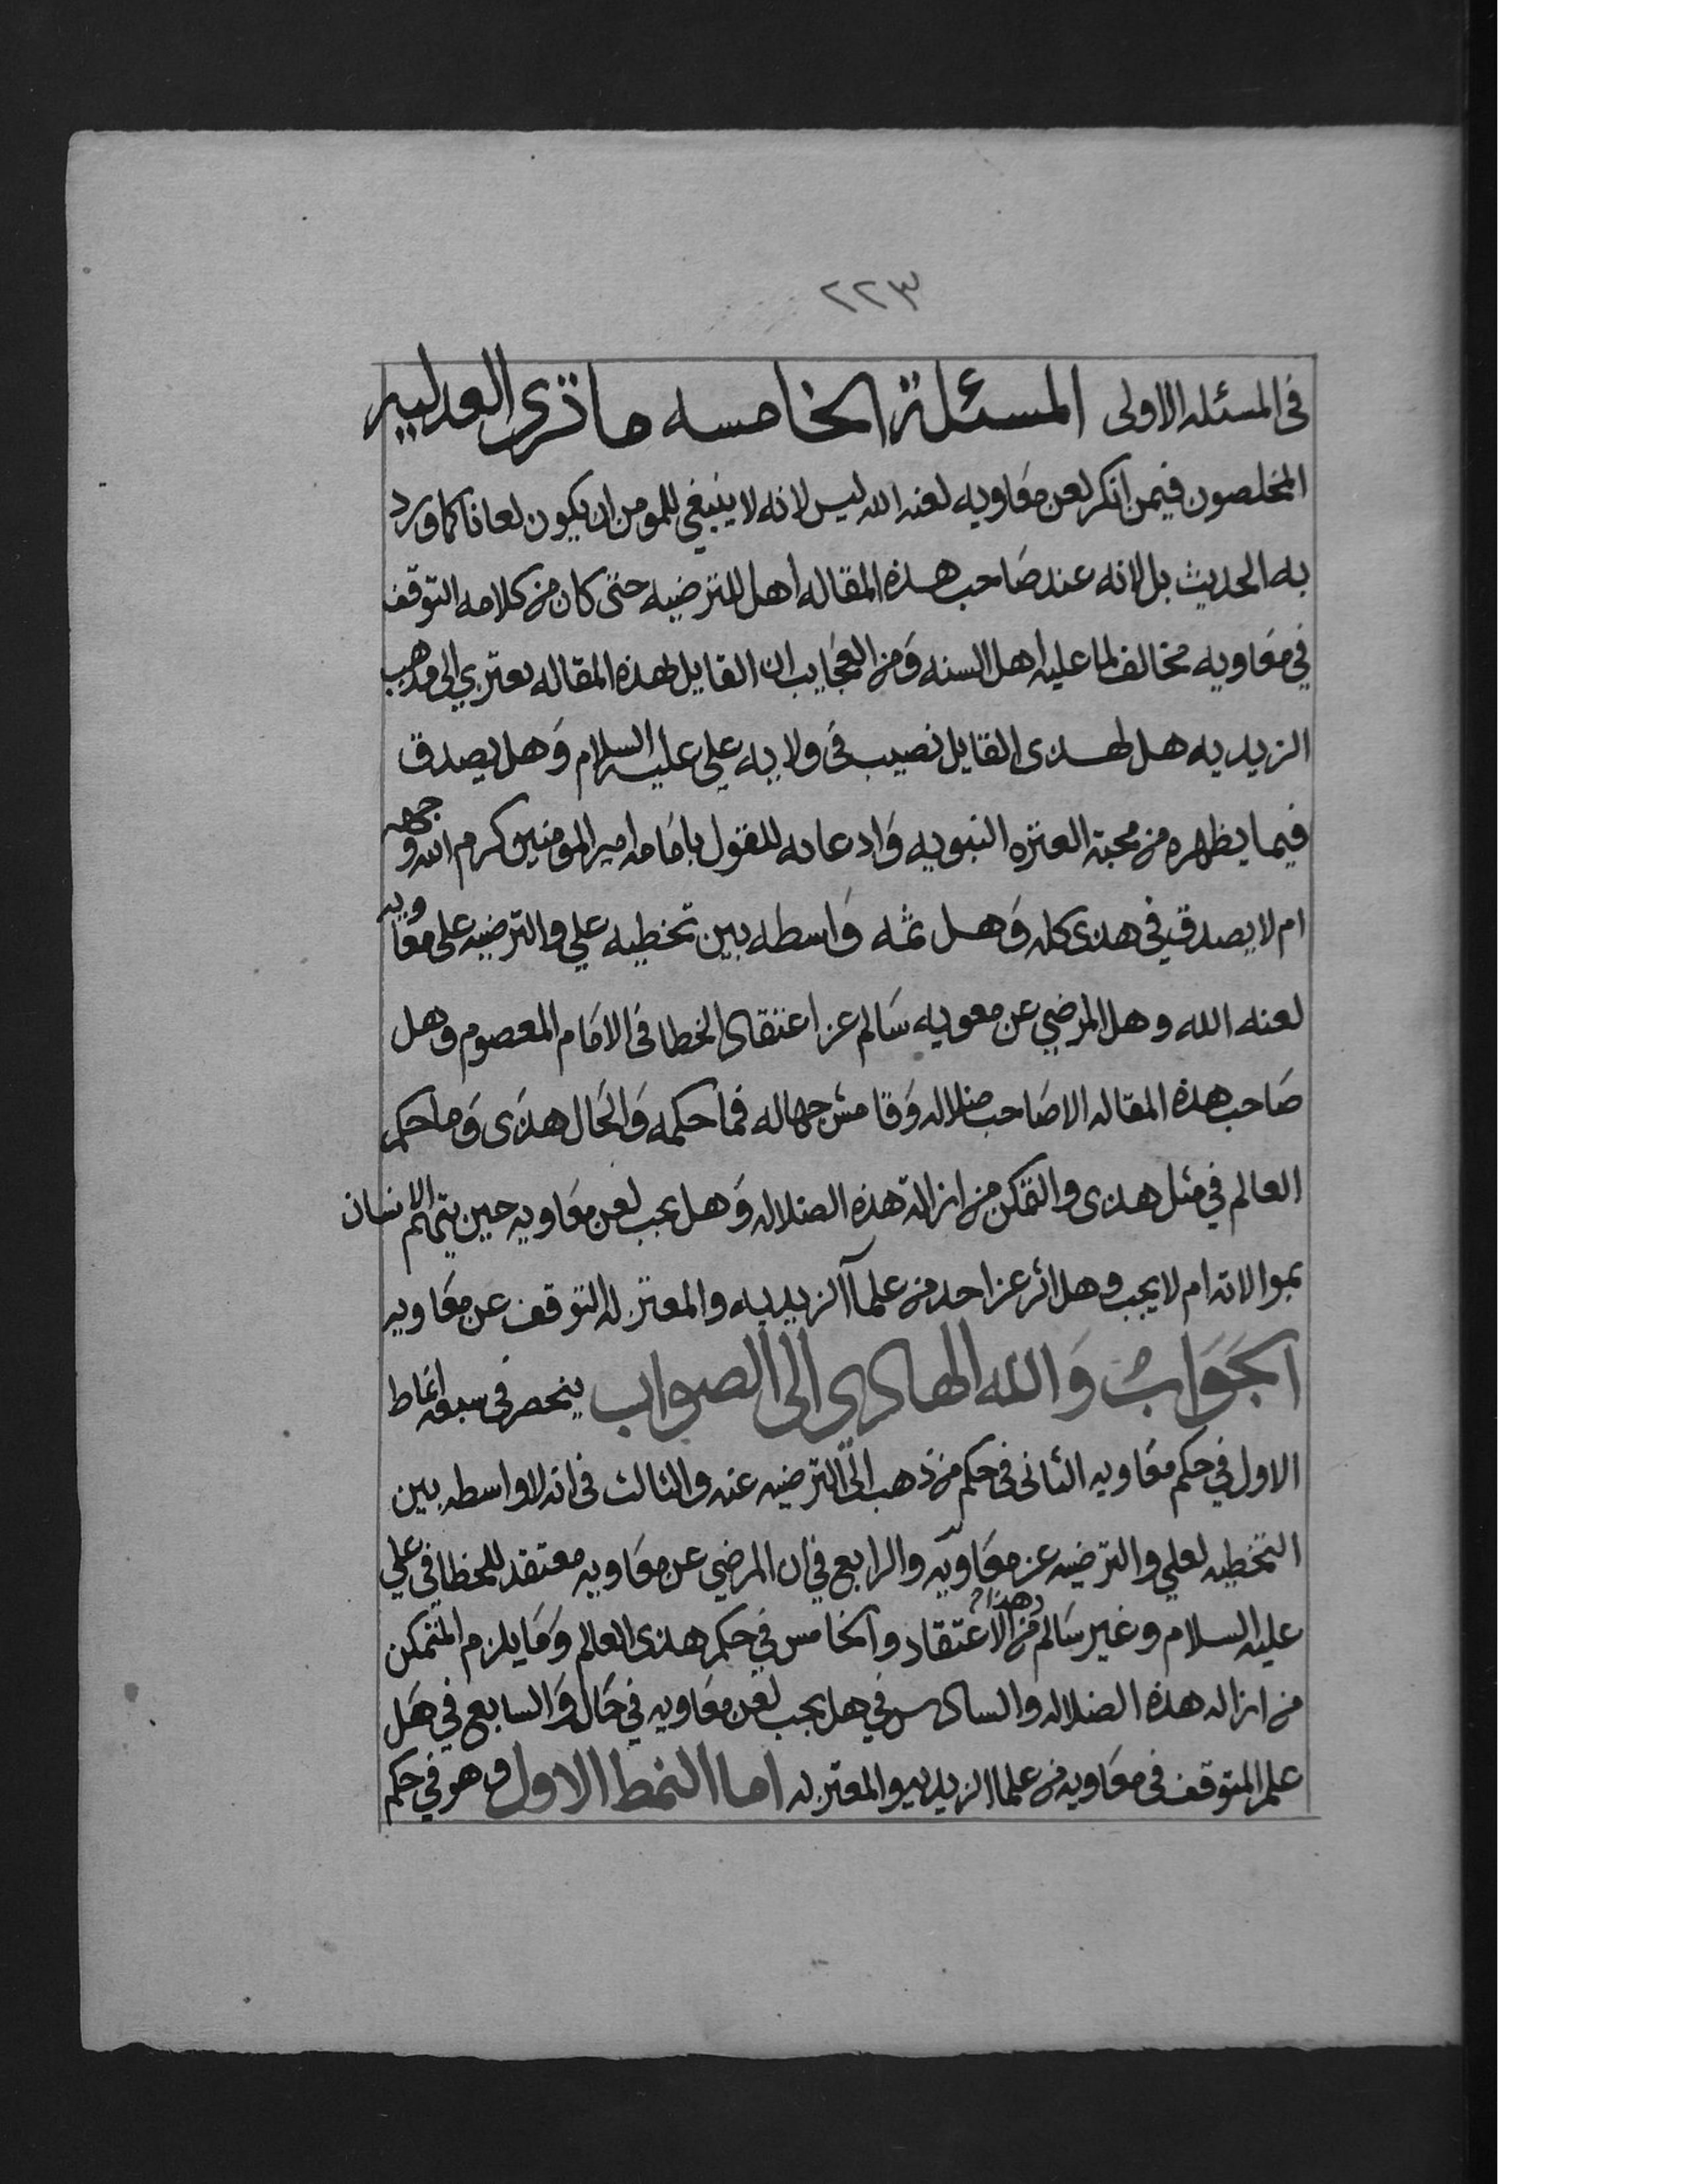 ٢٢٣
في المسئله الاولى المسئلة الخامسه ما ترى العدليه
المخلصون فيمن انكر لعن معاويه لعنه الله ليس لانه لا ينبغي للمومن ان يكون لعانا كما ورد
به الحديث بل لانه عند صاحب هذه المقاله اهل للترضيه حتى كان من كلامه التوقف
في معاويه مخالف لما عليه اهل السنه ومن العجايب ان القايل لهذه المقاله يعتزي الى مذهب
الزيديه هل لهذى القايل نصيب في ولايه علي عليه السلام وهل يصدق
فيما يظهره من محبة العتره النبويه وادعايه للقول بامامه امير المومنين كرم الله وجهه
ام لا يصدق في هذى كله وهل ثمه واسطه بين تخطيه علي والترضيه على معاويه
لعنه الله وهل المرضي عن معويه سالم عن اعتقاد الخطا في الامام المعصوم وهل
صاحب هذه المقاله الا صاحب ضلاله وقامش جهاله فما حكمه والحال هذى وما حكم
العالم في مثل هذى والتمكن من ازالة هذه الضلاله وهل يجب لعن معاويه حين يتهم الانسان
بموالاته ام لا يجب وهل اثر عن احد من علمآ الزيديه والمعتزله التوقف عن معاويه
الجواب والله الهادي الى الصواب ينحصر في سبعه انماط
الاول في حكم معاويه الثاني في حكم من ذهب الى الترضيه عنه والثالث في انه لا واسطه بين
التخطيه لعلي والترضيه عن معاويه والرابع في ان المرضي عن معاويه معتقد للخطا في علي
عليه السلام وغير سالم من هذا الاعتقاد والخامس في حكم هذى العالم وما يلزم المتمكن
من ازاله هذه الضلاله والسادس في هل يجب لعن معاويه في حال والسابع في هل
علم المتوقف في معاويه من علما الزيديه والمعتزله اما النمط الاول وهو في حكم